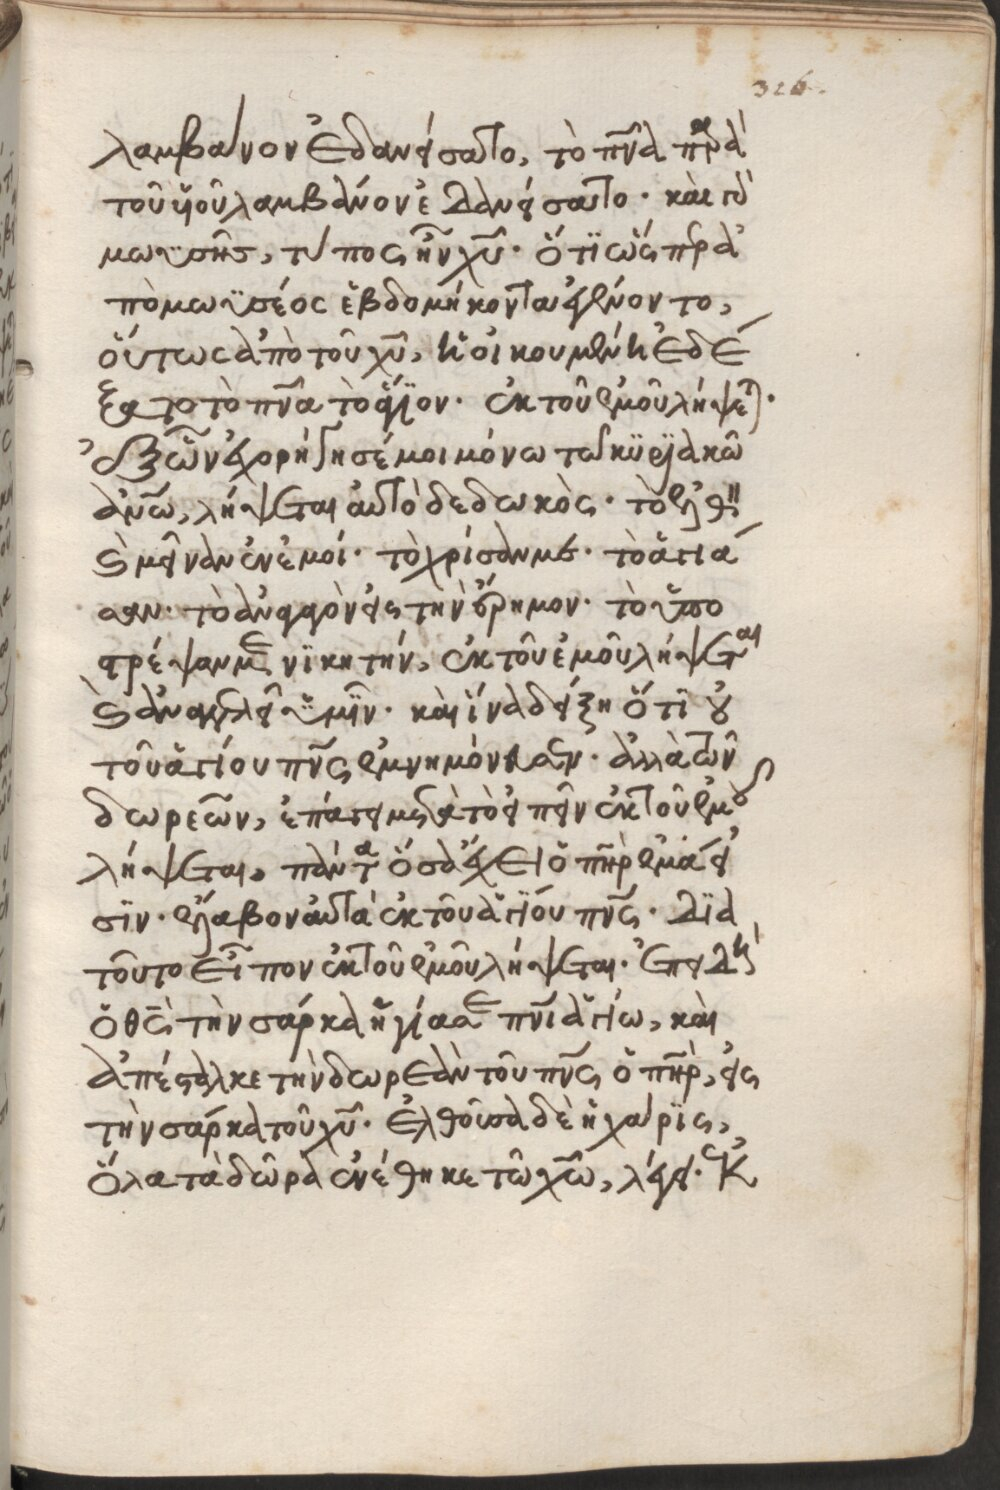 326.
λαμβάνον ἐδανείσατο, τὸ πνα παρὰ
τοῦ υἱοῦ λαμβάνον ἐδανείσατο. καὶ γὰρ
μωϋσῆς, τύπος ἦν χυ. ὅτι ὡς παρ ἀ
πὸ μωϋσέος ἑβδομήκοντα ἐγένοντο,
οὕτως ἀπὸ τοῦ χυ, ἡ οἰκουμένη ἐδέ
ξατο τὸ πνα τὸ ἅγιον. ἐκ τοῦ ἐμοῦ λήψεται.
μοι μόνω τῶ κυριακῶ
ἀνω, λήψεται αὐτὸ δεδωκὸς. τὸ
μεῖναν ἐν ἐμοί. τὸ χρίσαν με. τὸ ἁγιά
σαν. τὸ ἀναγαγὸν εἰς τὴν ἔρημον. τὸ ὑπο
στρέψαν με νικητήν, ἐκ τοῦ ἐμοῦ λήψεται
καὶ ἀναγγελεῖ ὑμῖν. καὶ ἵνα δείξη ὅτι οὐ
τοῦ ἁγίου πνς ἐμνημόνευσεν. ἀλλὰ τῶν
δωρεῶν, ἐπάγει μετὰ τὸ εἰπεῖν ἐκ τοῦ ἐμοῦ
λήψεται, πάντα ὅσα ἔχει ὁ πηρ ἐμά εἰ
σϊν. ἔλαβον αὐτὰ ἐκ τοῦ ἁγίου πνς. διὰ
τοῦτο εἶπον ἐκ τοῦ ἐμοῦ λήψεται. ἐπειδὴ
ὁ θς τὴν σάρκα ἡγίασε πνι ἁγίω, καὶ
ἀπέσταλκε τὴν δωρεὰν τοῦ πνς ὁ πηρ, εἰς
τὴν σάρκα τοῦ χυ. ἐλθοῦσα δὲ ἡ χάρϊς,
ὅλα τὰ δῶρα ἐνέθηκε τῶ χω, λέγει. Κ